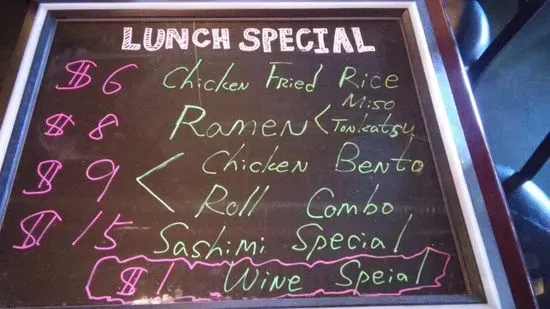 LUNCH SPECIAL
$6 Chicken Fried Rice
$8 Ramen < Miso
Tonkatsu
$9 < Chicken Bento
Roll Combo
$15 Sashimi Special
$1 Wine Speial